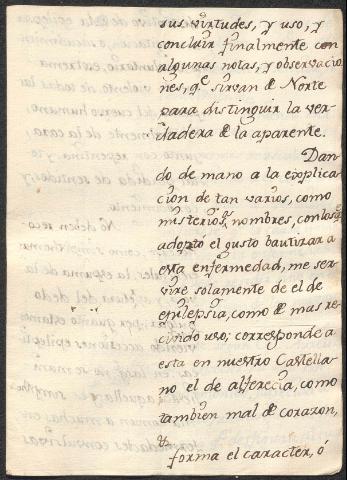 sus virtudes, y uso, y
concluir finalmente con
algunas notas, y observacio
nes, qe. sirvan de Norte
para distinguir la ver-
dadera de la aparente.
Dan-
do de mano a la explica-
cion de tan varios, como
misteriosos nombres, con los q
adoptó el gusto bautizar a
esta enfermedad, me ser-
vire solamente de el de
epilepsia, como de mas re-
civido uso; corresponde a
esta en nuestro Castella-
no el de alferecia, como
tambien mal de corazon,
&
forma el caracter, ó